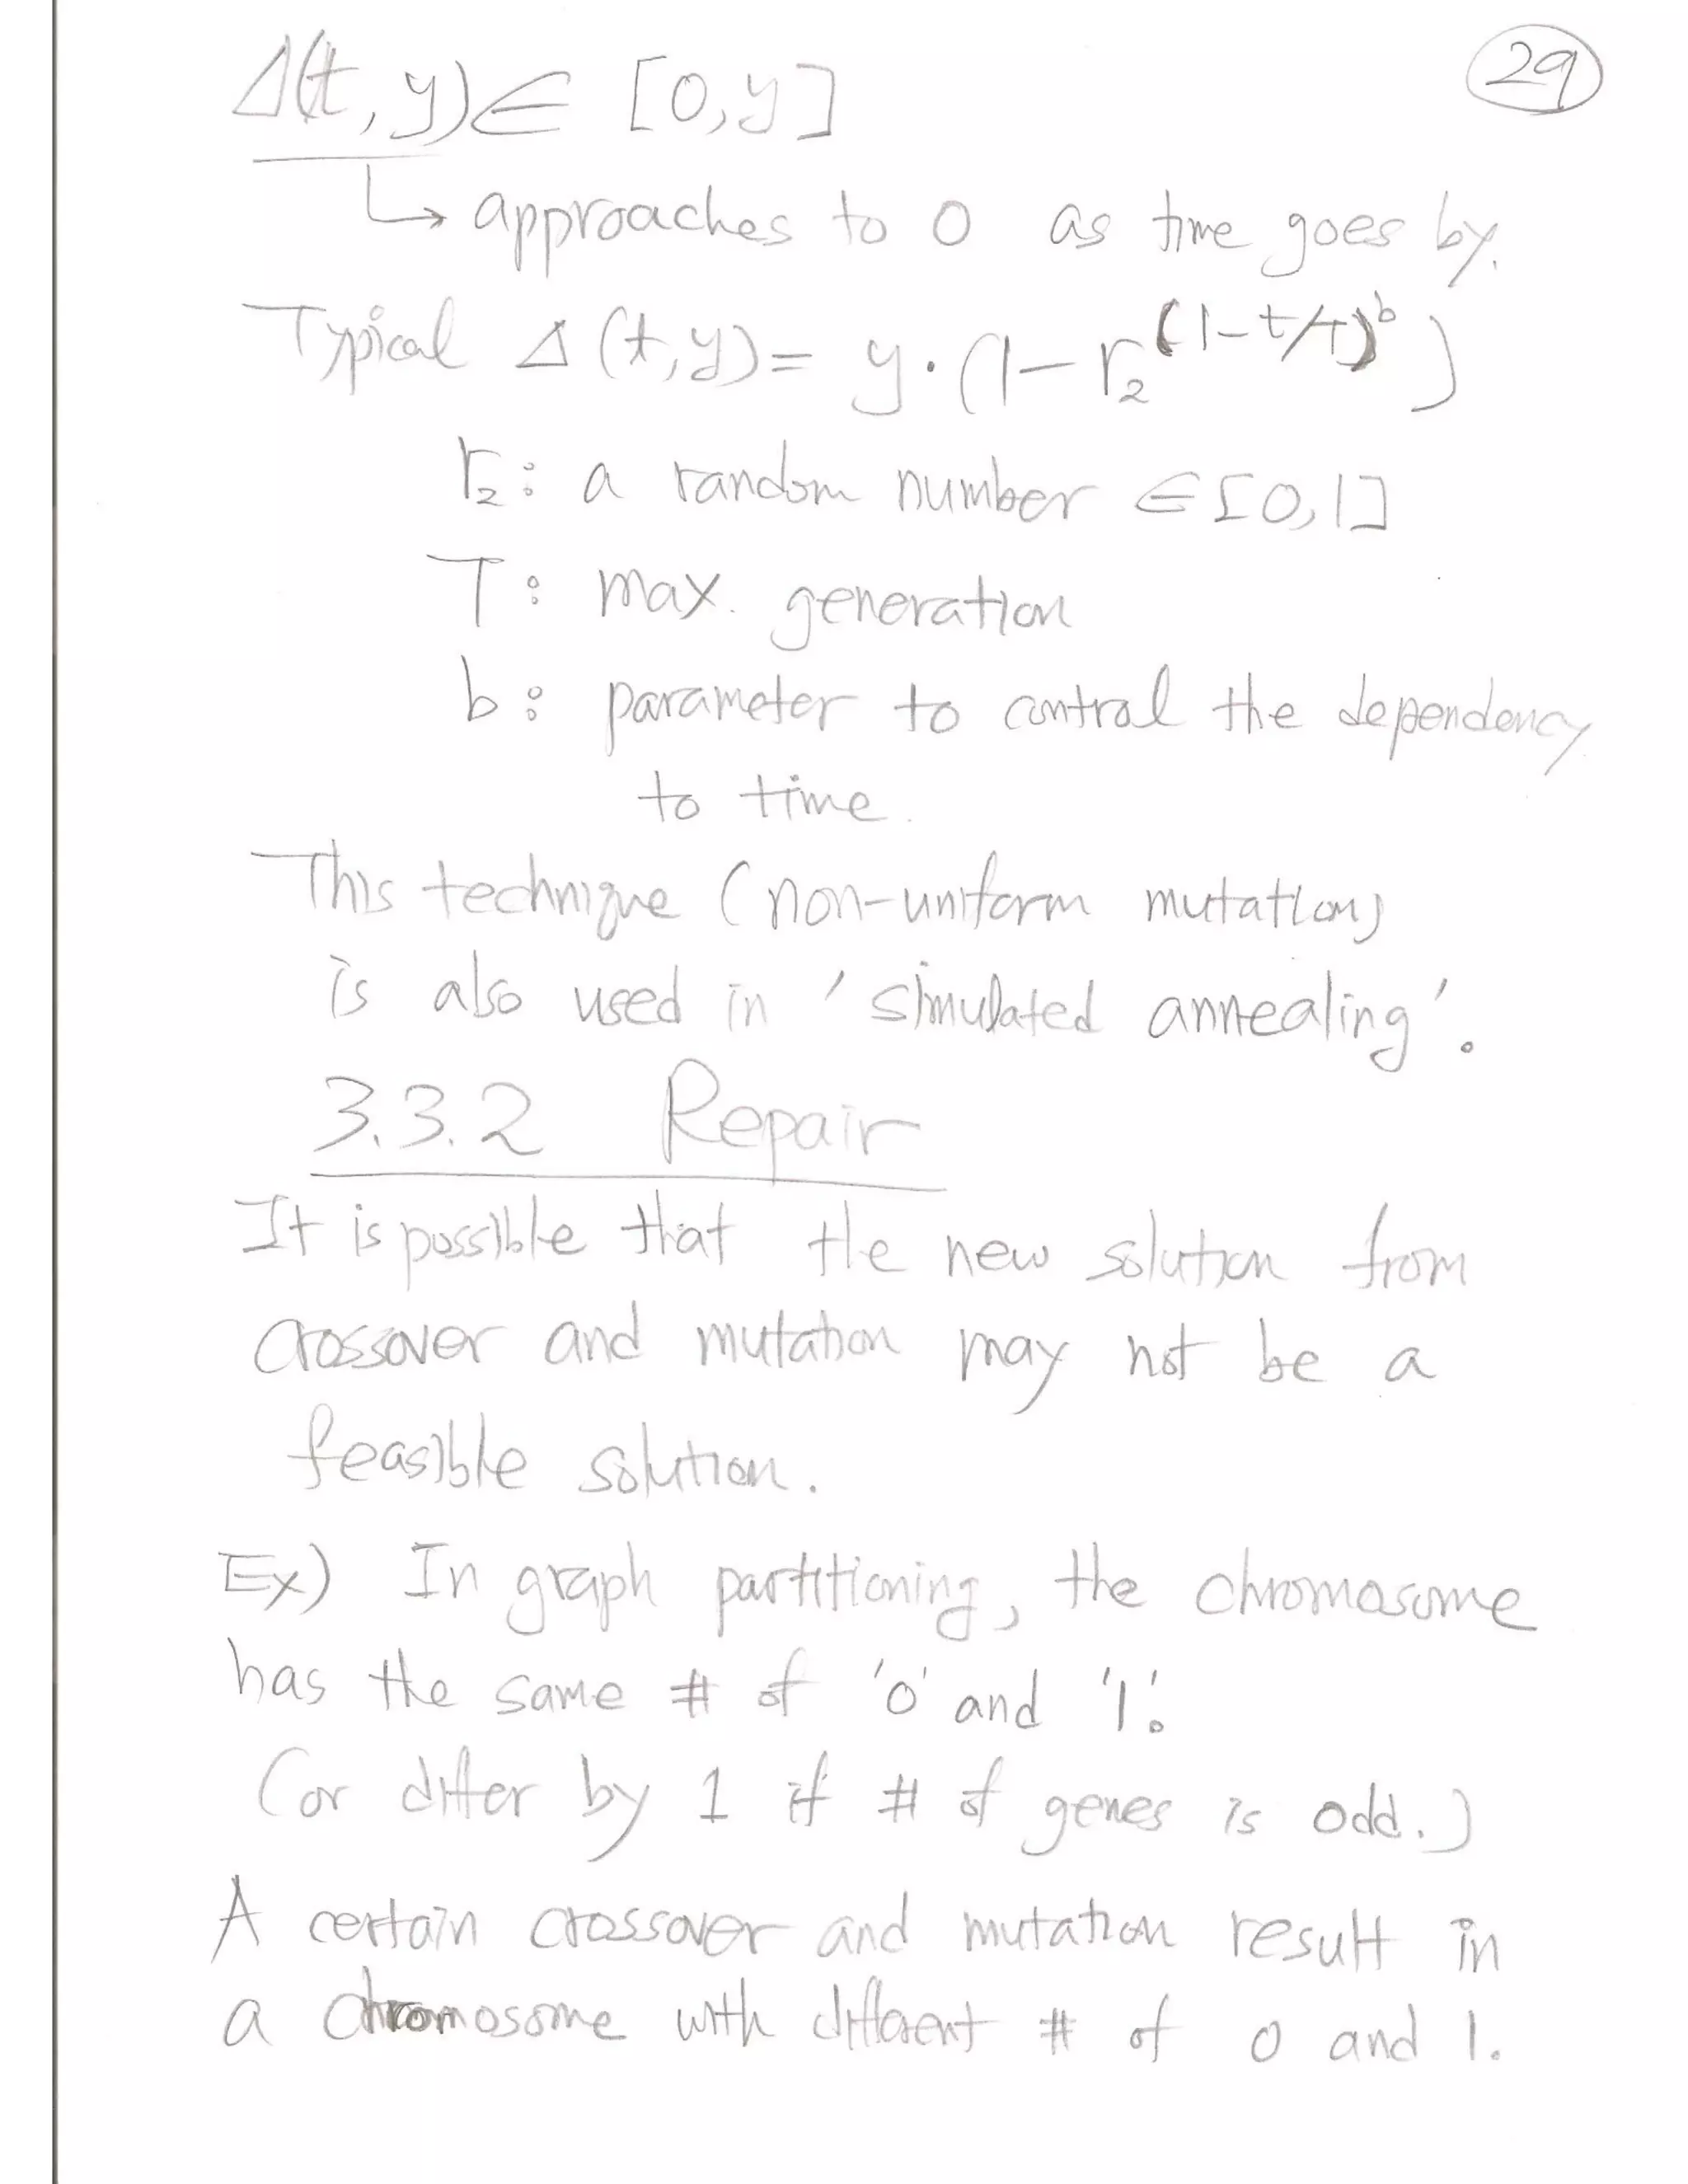 29
Δ(t, y) ∈ [0, y]
↳ approaches to 0 as time goes by.
Typical Δ(t, y) = y·(1 − r₂^(1−t/T)^b)
r₂: a random number ∈ [0, 1]
T: max. generation
b: parameter to control the dependency
to time.
This technique (non-uniform mutation)
is also used in 'simulated annealing'.
3.3.2 Repair
It is possible that the new solution from
crossover and mutation may not be a
feasible solution.
Ex) In graph partitioning, the chromosome
has the same # of '0' and '1'.
(or differ by 1 if # of genes is odd.)
A certain crossover and mutation result in
a chromosome with different # of 0 and 1.